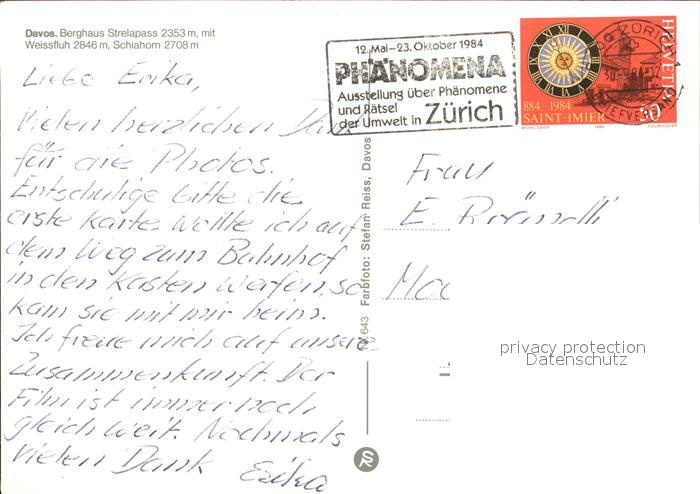 Davos. Berghaus Strelapass 2353 m, mit
Weissfluh 2846 m, Schiahorn 2708 m
Liebe Erika,
Vielen herzlichen Dank
für die Photos.
Entschulige bitte die
erste Karte wollte ich auf
dem Weg zum Bahnhof
in den Kasten werfen, so
kam sie mit mir heim.
Ich freue mich auf unsere
Zusammenkunft. Der
Film ist immer noch
gleich weit. Nochmals
vielen Dank Erika
643 Farbfoto: Stefan Reiss, Davos
12. Mai-23. Oktober 1984
PHÄNOMENA
Ausstellung über Phänomene
und Rätsel
der Umwelt in Zürich
HELVETIA
884-1984
SAINT-IMIER
50
ZÜRICH
30.-9.84
BRIEFVERSAND
Frau
E.
privacy protection
Datenschutz